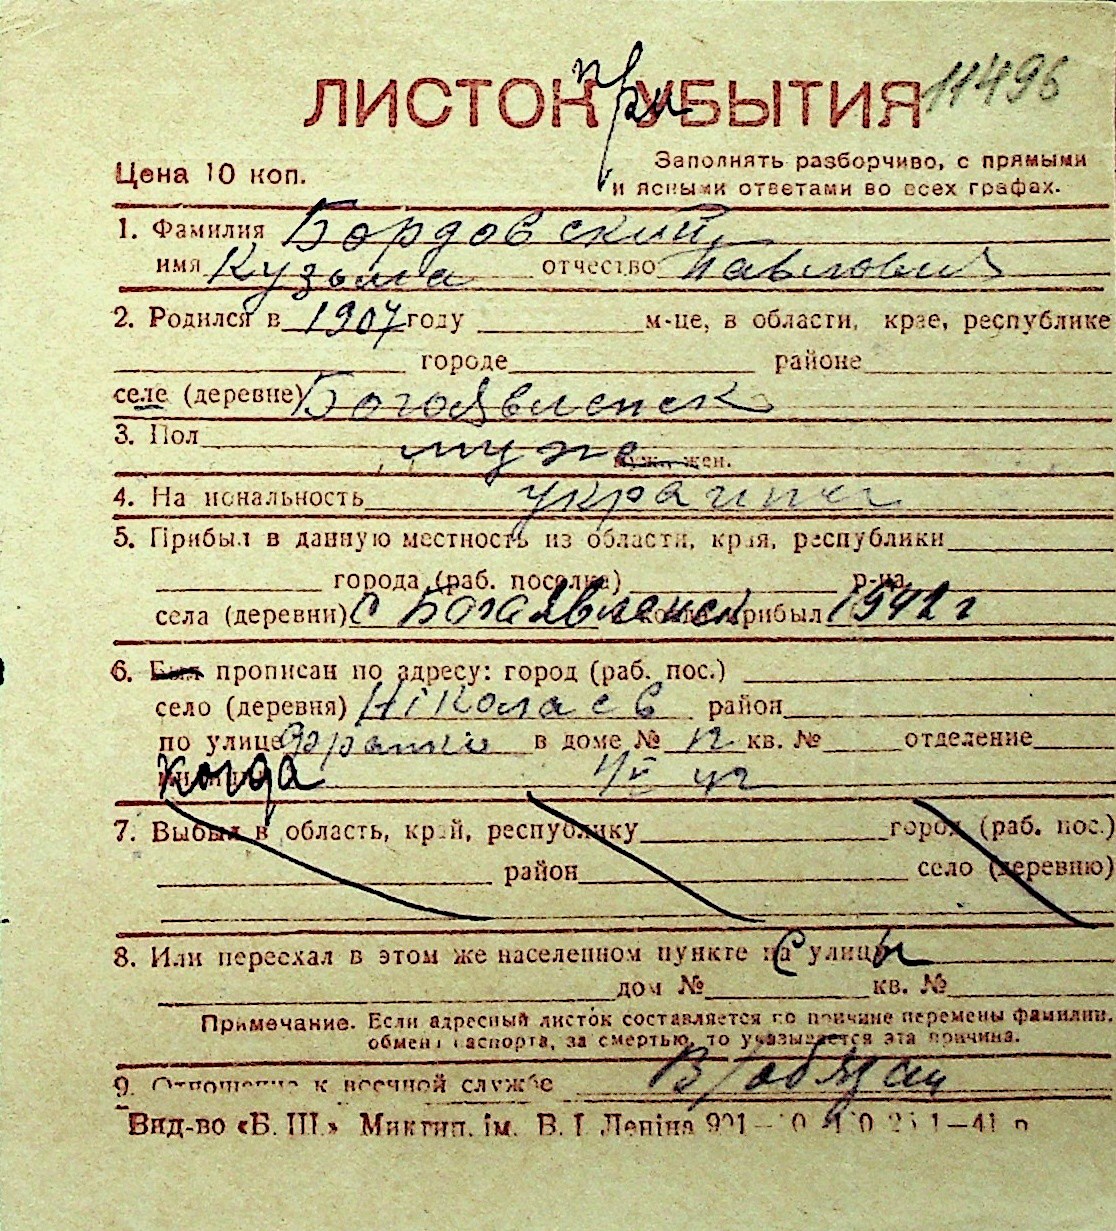 ЛИСТОК при УБЫТИЯ 11495
Цена 10 коп.
Заполнять разборчиво, с прямыми
и ясными ответами во всех графах.
1. Фамилия Бордовский
имя Кузьма отчество Павлович
2. Родился в 1907 году м-це, в области, крае, республике
городе районе
селе (деревне) Богоявленск
3. Пол муж
муж. жен.
4. Национальность украинец
5. Прибыл в данную местность из области, края, республики
города (раб. поселка) р-на
села (деревни) с Богаявленск прибыл 1942 г
6. Был прописан по адресу: город (раб. пос.)
село (деревня) Ніколаев район
по улице в доме № кв. № отделение
когда
7. Выбыл в область, край, республику город (раб. пос.)
район село (деревню)
8. Или переехал в этом же населенном пункте с улицы
дом № кв. №
Примечание. Если адресный листок составляется по причине перемены фамилии,
обмена паспорта, за смертью, то указывается эта причина.
9. Отношение к военной службе В/обязан
Вид-во «Б. Ш.» Миктип. ім. В. І. Леніна